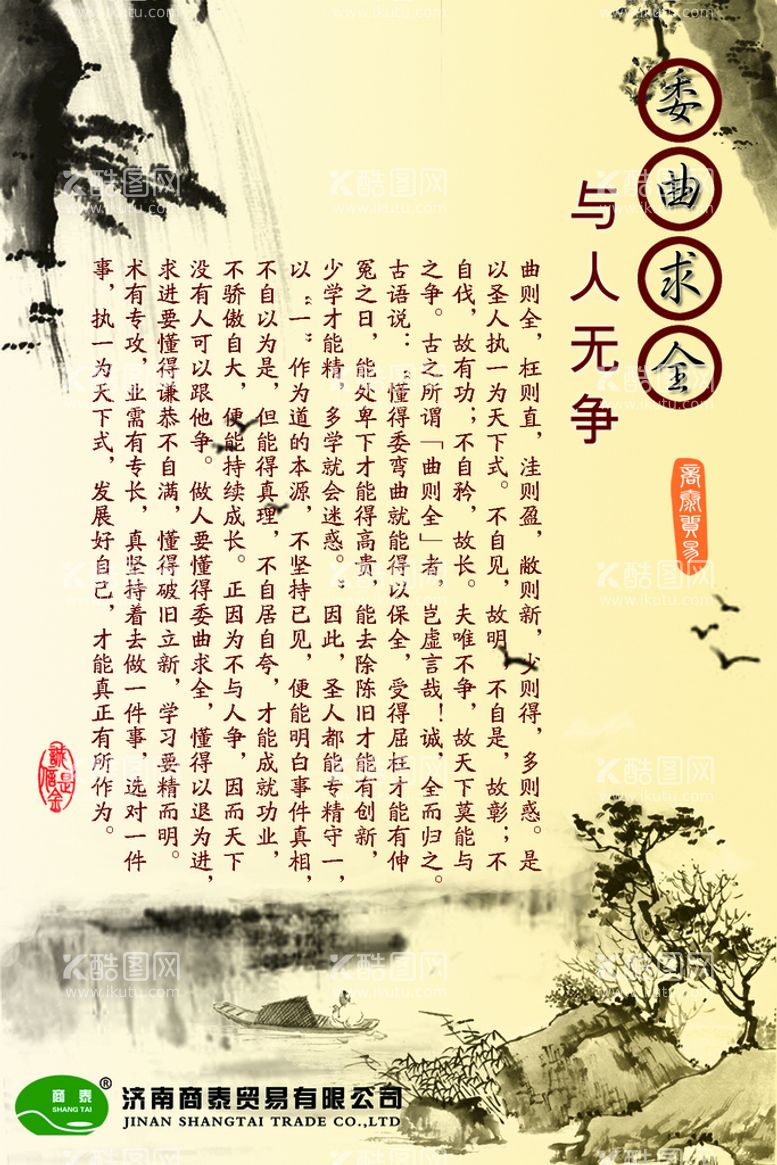 委曲求全
与人无争
商泰貿易
曲则全，枉则直，洼则盈，敝则新，少则得，多则惑。是
以圣人执一为天下式。不自见，故明，不自是，故彰；不
自伐，故有功；不自矜，故长。夫唯不争，故天下莫能与
之争。古之所谓「曲则全」者，岂虚言哉！诚，全而归之。
古语说：“懂得委弯曲就能得以保全，受得屈枉才能有伸
冤之日，能处卑下才能得高贵，能去除陈旧才能有创新，
少学才能精，多学就会迷惑。。因此，圣人都能专精守一，
以“一”作为道的本源，不坚持已见，便能明白事件真相，
不自以为是，但能得真理，不自居自夸，才能成就功业，
不骄傲自大，便能持续成长。正因为不与人争，因而天下
没有人可以跟他争。做人要懂得委曲求全，懂得以退为进，
求进要懂得谦恭不自满，懂得破旧立新，学习要精而明。
术有专攻，业需有专长，真坚持着去做一件事，选对一件
事，执一为天下式，发展好自己，才能真正有所作为。
誠信是金
商泰
SHANG TAI
®
济南商泰贸易有限公司
JINAN SHANGTAI TRADE CO.,LTD
酷图网
www.ikutu.com